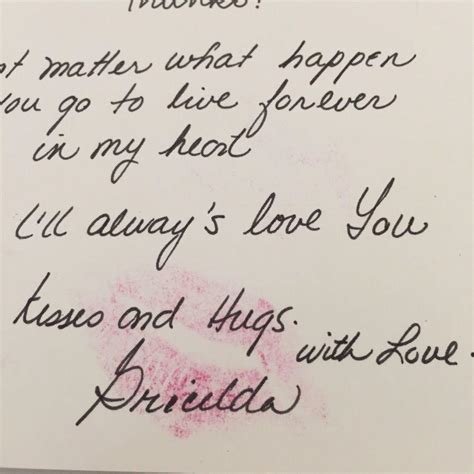 Thanks!
ot matter what happen
you go to live forever
in my heart
I'll alway's love You
Kisses and Hugs.
with Love.
Gricelda